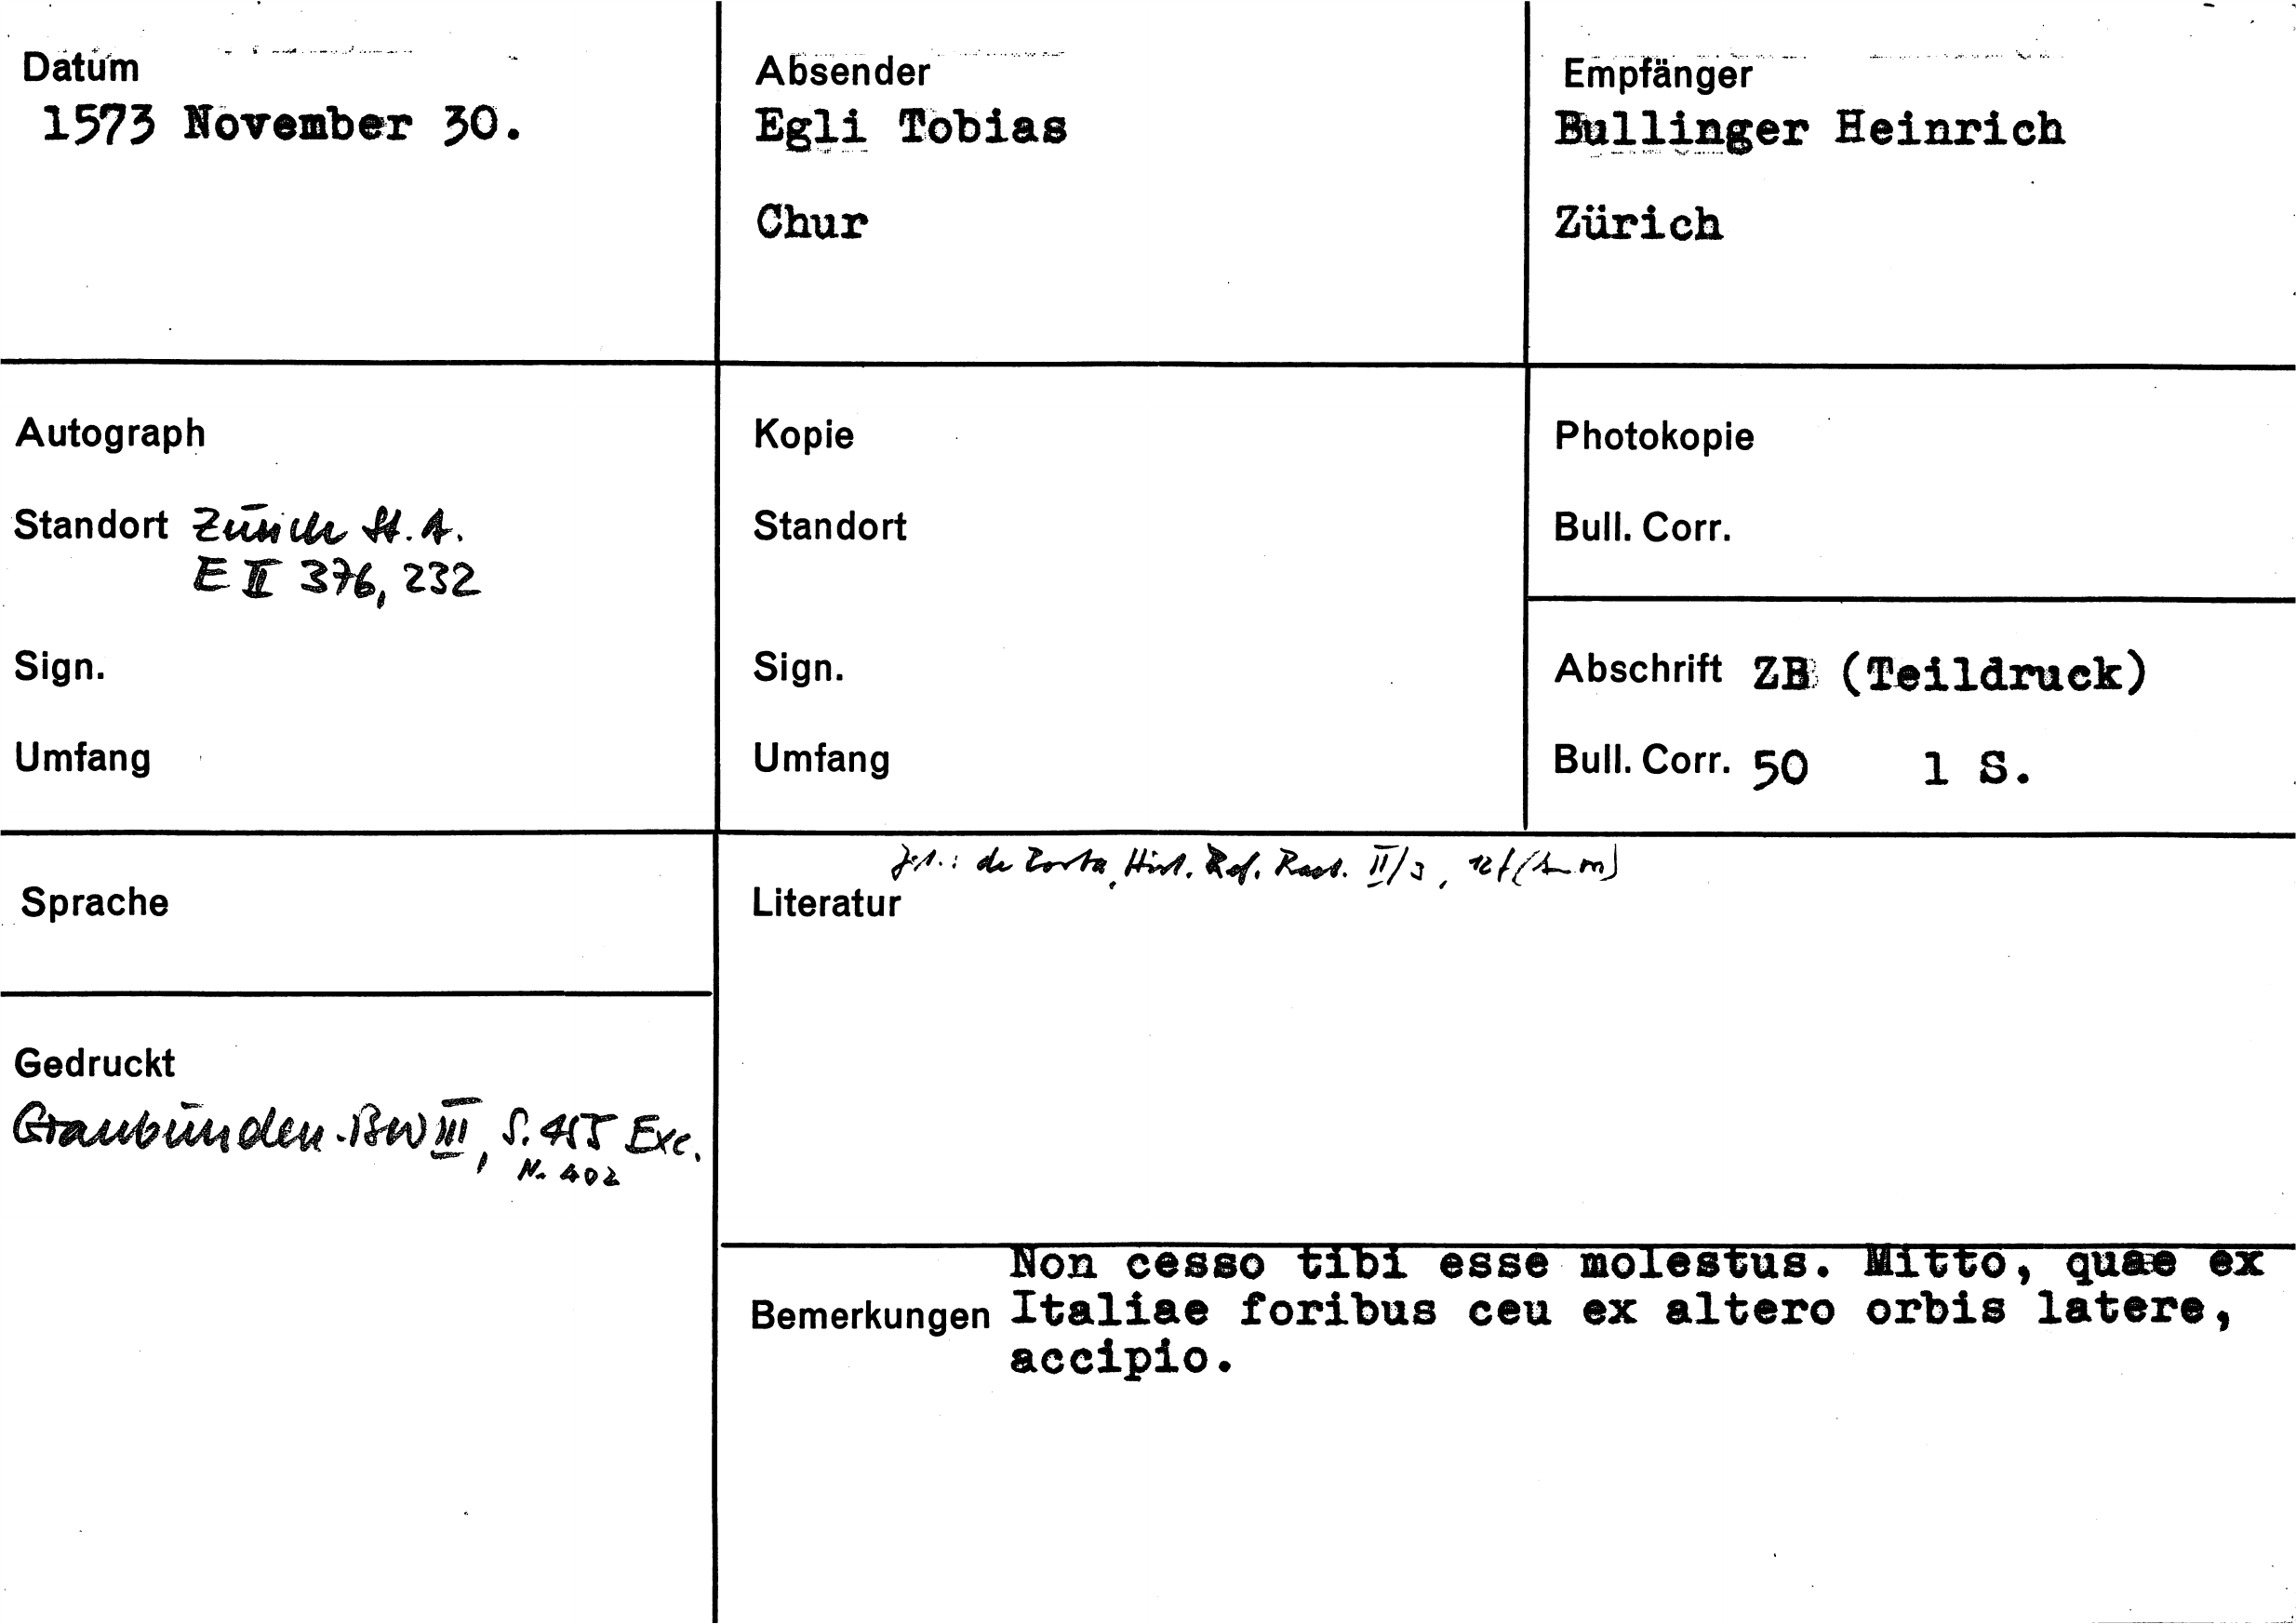 Datum
1573 November 30.
Absender
Egli Tobias
Chur
Empfänger
Bullinger Heinrich
Zürich
Autograph
Standort Zürich St. A.
E II 376, 232
Sign.
Umfang
Kopie
Standort
Sign.
Umfang
Photokopie
Bull. Corr.
Abschrift ZB (Teildruck)
Bull. Corr. 50 1 S.
Sprache
Gedruckt
Graubünden.BW III, S. 455 Exc.
N. 402
de Porta, Hist. Ref. Raet. II/3, 12f
Literatur
Bemerkungen
Non cesso tibi esse molestus. Mitto, quae ex
Italiae foribus ceu ex altero orbis latere,
accipio.